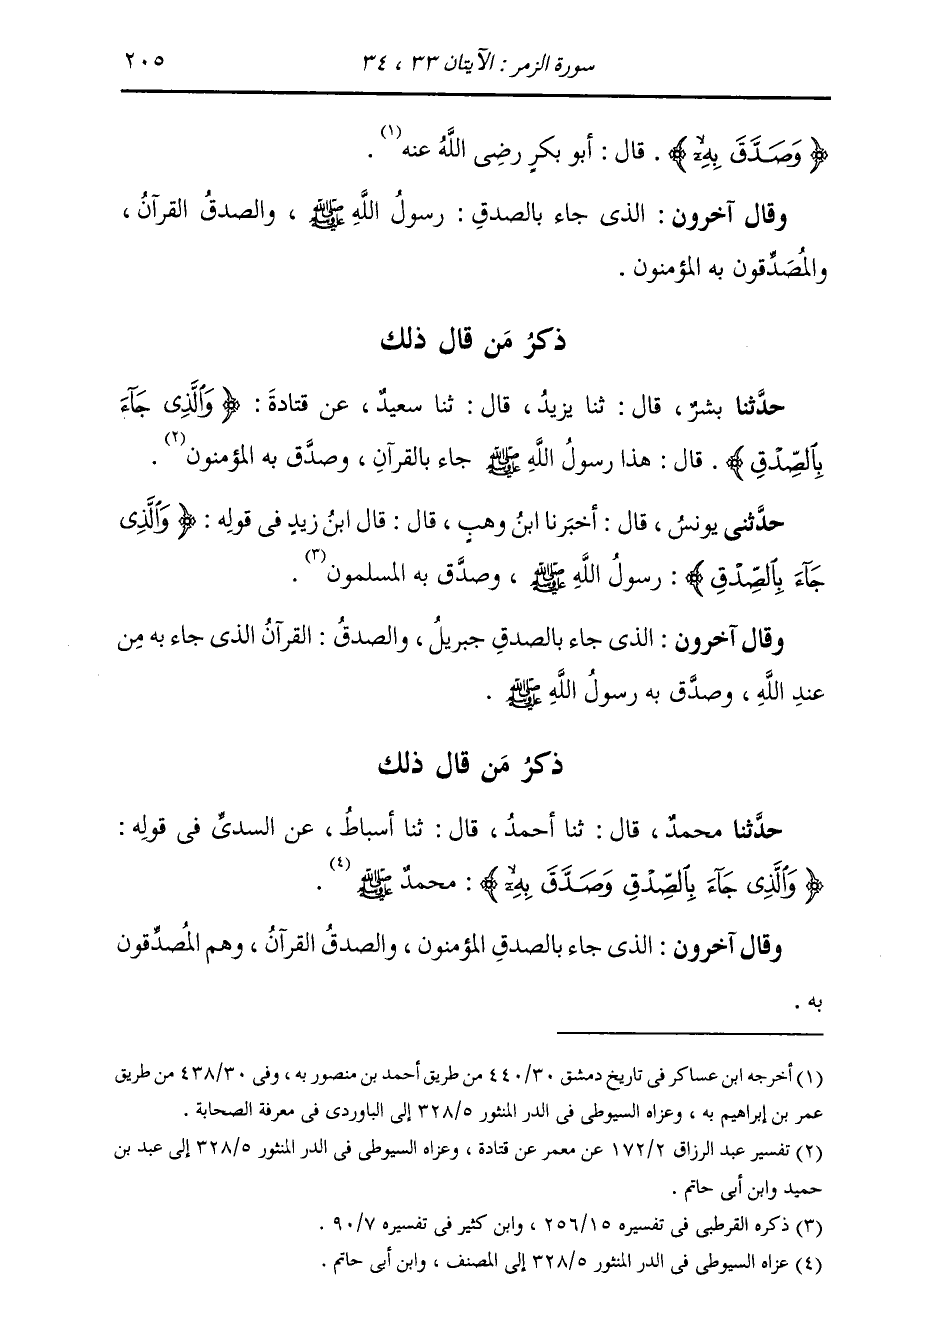 سورة الزمر : الآيتان ٣٣ ، ٣٤ ٢٠٥
﴿ وَصَدَّقَ بِهِۦٓ ﴾ . قال : أبو بكرٍ رضِى اللَّهُ عنه(١) .
وقال آخرون : الذى جاء بالصدقِ : رسولُ اللَّهِ ﷺ ، والصدقُ القرآنُ ،
والمُصَدِّقون به المؤمنون .
ذكرُ مَن قال ذلك
حدَّثنا بشرٌ ، قال : ثنا يزيدُ ، قال : ثنا سعيدٌ ، عن قتادةَ : ﴿ وَٱلَّذِى جَآءَ
بِٱلصِّدْقِ ﴾ . قال : هذا رسولُ اللَّهِ ﷺ جاء بالقرآنِ ، وصدَّق به المؤمنون(٢) .
حدَّثنى يونسُ ، قال : أخبَرنا ابنُ وهبٍ ، قال : قال ابنُ زيدٍ فى قولِه : ﴿ وَٱلَّذِى
جَآءَ بِٱلصِّدْقِ ﴾ : رسولُ اللَّهِ ﷺ ، وصدَّق به المسلمون(٣) .
وقال آخرون : الذى جاء بالصدقِ جبريلُ ، والصدقُ : القرآنُ الذى جاء به مِن
عندِ اللَّهِ ، وصدَّق به رسولُ اللَّهِ ﷺ .
ذكرُ مَن قال ذلك
حدَّثنا محمدٌ ، قال : ثنا أحمدُ ، قال : ثنا أسباطُ ، عن السدىِّ فى قولِه :
﴿ وَٱلَّذِى جَآءَ بِٱلصِّدْقِ وَصَدَّقَ بِهِۦٓ ﴾ : محمدٌ ﷺ (٤) .
وقال آخرون : الذى جاء بالصدقِ المؤمنون ، والصدقُ القرآنُ ، وهم المُصدِّقون
به .
(١) أخرجه ابن عساكر فى تاريخ دمشق ٤٤٠/٣٠ من طريق أحمد بن منصور به ، وفى ٤٣٨/٣٠ من طريق
عمر بن إبراهيم به ، وعزاه السيوطى فى الدر المنثور ٣٢٨/٥ إلى الباوردى فى معرفة الصحابة .
(٢) تفسير عبد الرزاق ١٧٢/٢ عن معمر عن قتادة ، وعزاه السيوطى فى الدر المنثور ٣٢٨/٥ إلى عبد بن
حميد وابن أبى حاتم .
(٣) ذكره القرطبى فى تفسيره ٢٥٦/١٥ ، وابن كثير فى تفسيره ٩٠/٧ .
(٤) عزاه السيوطى فى الدر المنثور ٣٢٨/٥ إلى المصنف ، وابن أبى حاتم .